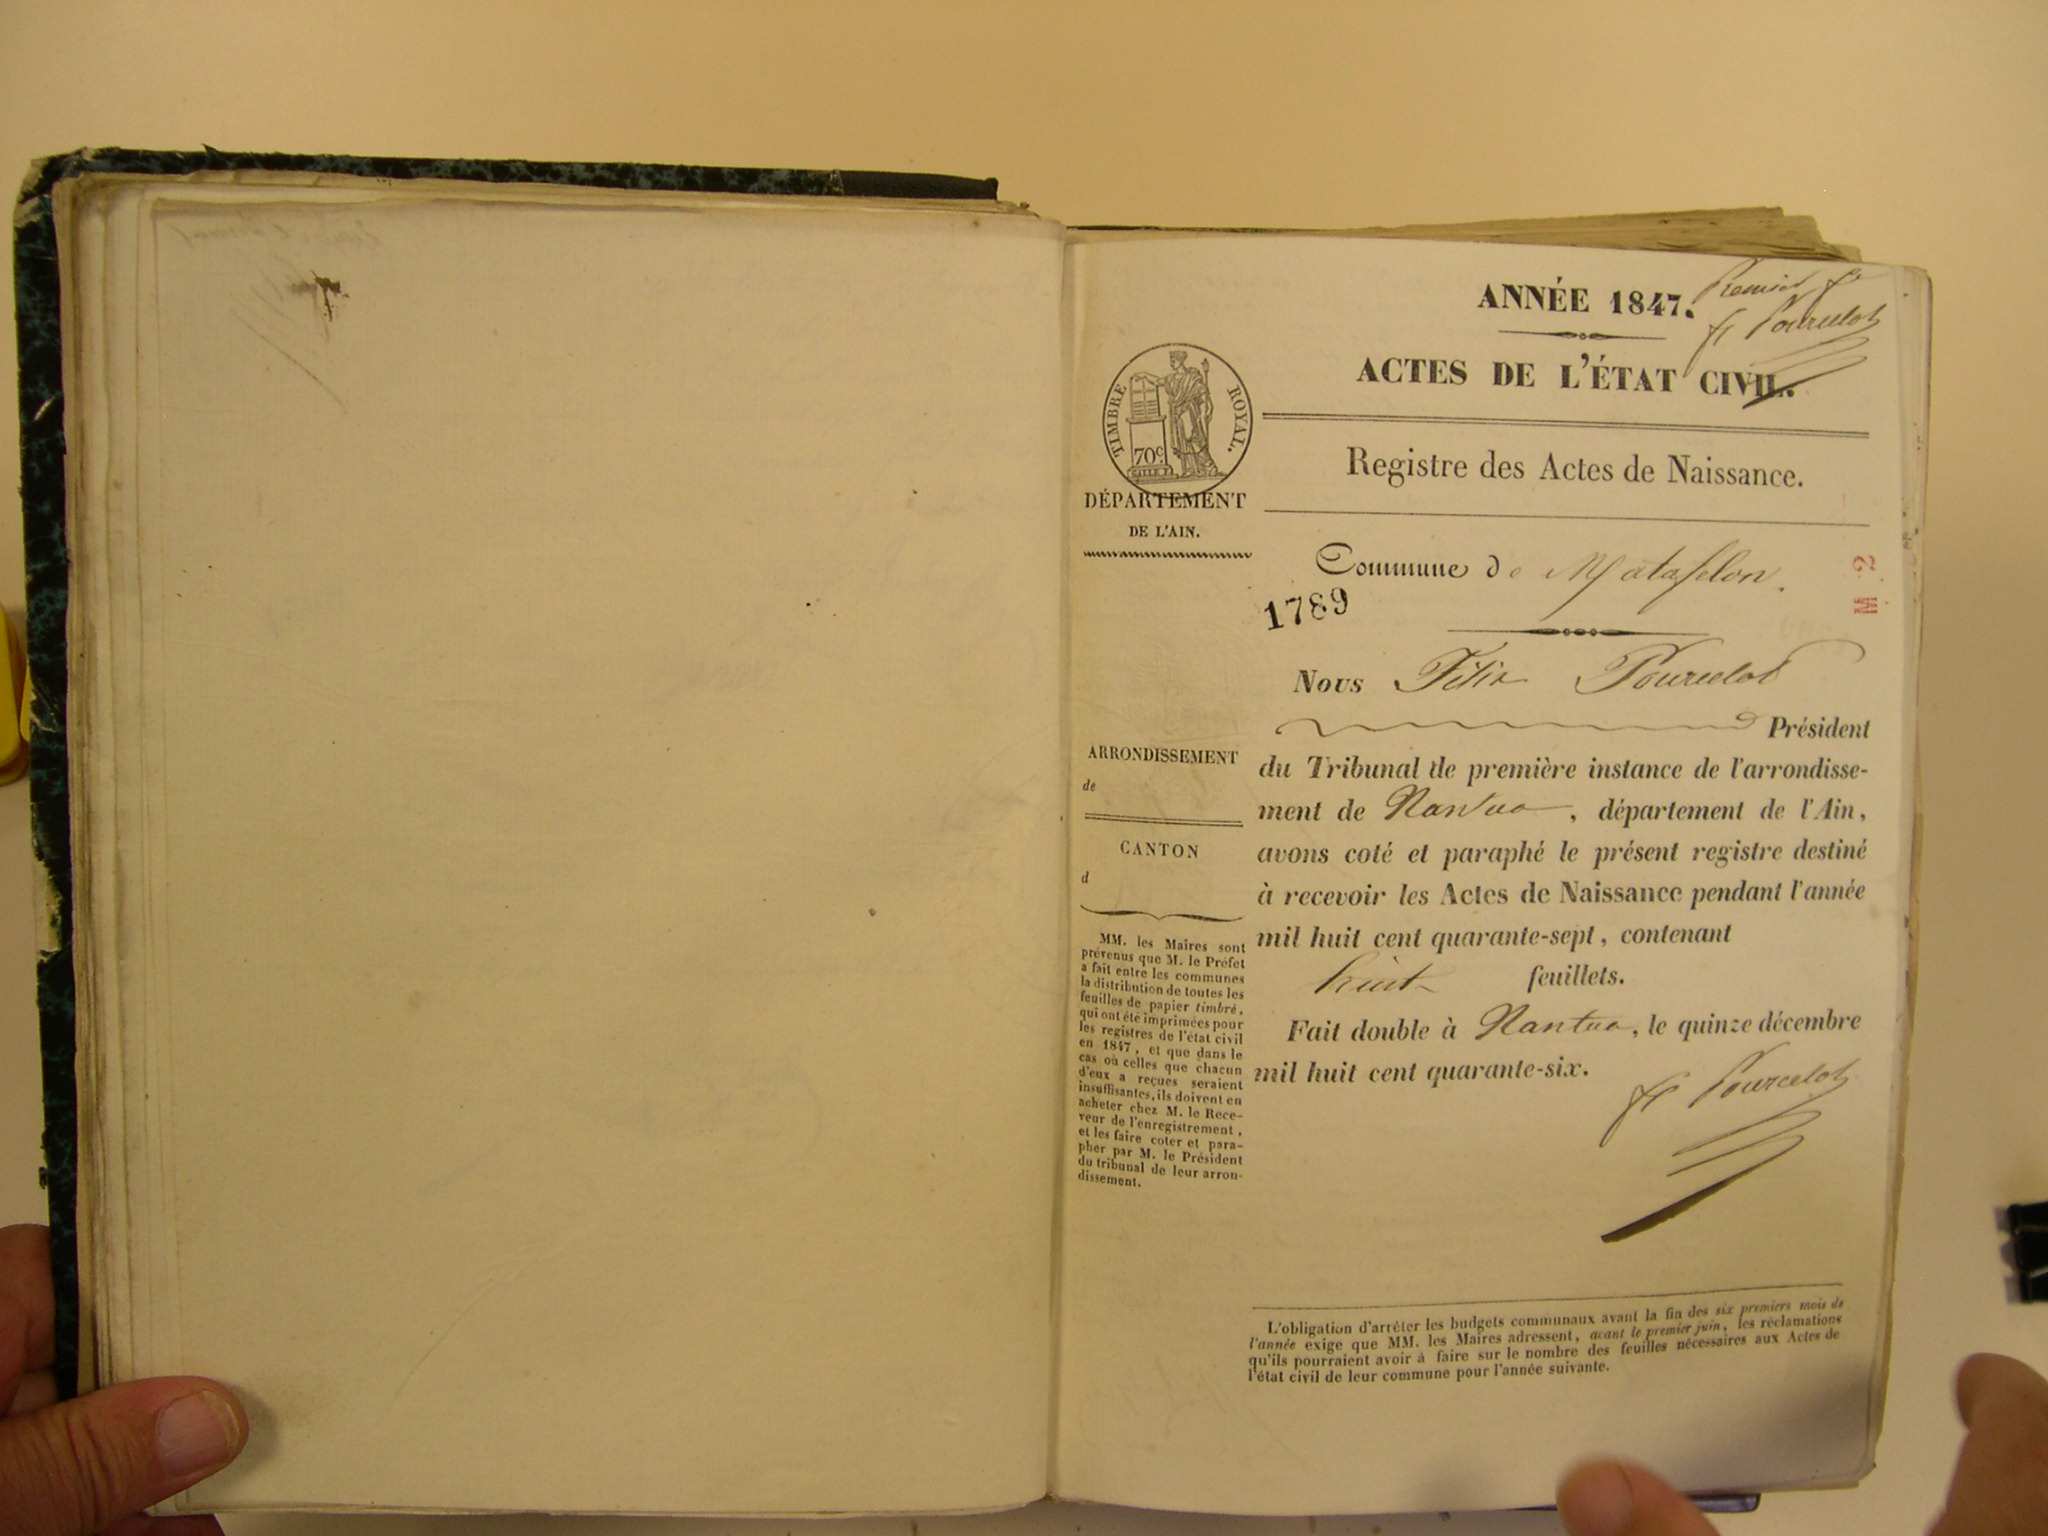 ANNÉE 1847.
Premier fo
fx Pourcelot
ACTES DE L'ÉTAT CIVIL.
TIMBRE ROYAL.
70c
Registre des Actes de Naissance.
DÉPARTEMENT
DE L'AIN.
Commune de Matafelon.
1789
M 2
Nous Félix Pourcelot
Président
du Tribunal de première instance de l'arrondisse-
ment de Nantua, département de l'Ain,
avons coté et paraphé le présent registre destiné
à recevoir les Actes de Naissance pendant l'année
mil huit cent quarante-sept, contenant
huit feuillets.
Fait double à Nantua, le quinze décembre
mil huit cent quarante-six.
fx Pourcelot
ARRONDISSEMENT
de
CANTON
d
MM. les Maires sont
prévenus que M. le Préfet
a fait entre les communes
la distribution de toutes les
feuilles de papier timbré,
qui ont été imprimées pour
les registres de l'état civil
en 1847, et que dans le
cas où celles que chacun
d'eux a reçues seraient
insuffisantes, ils doivent en
acheter chez M. le Rece-
veur de l'enregistrement,
et les faire coter et para-
pher par M. le Président
du tribunal de leur arron-
dissement.
L'obligation d'arrêter les budgets communaux avant la fin des six premiers mois de
l'année exige que MM. les Maires adressent, avant le premier juin, les réclamations
qu'ils pourraient avoir à faire sur le nombre des feuilles nécessaires aux Actes de
l'état civil de leur commune pour l'année suivante.